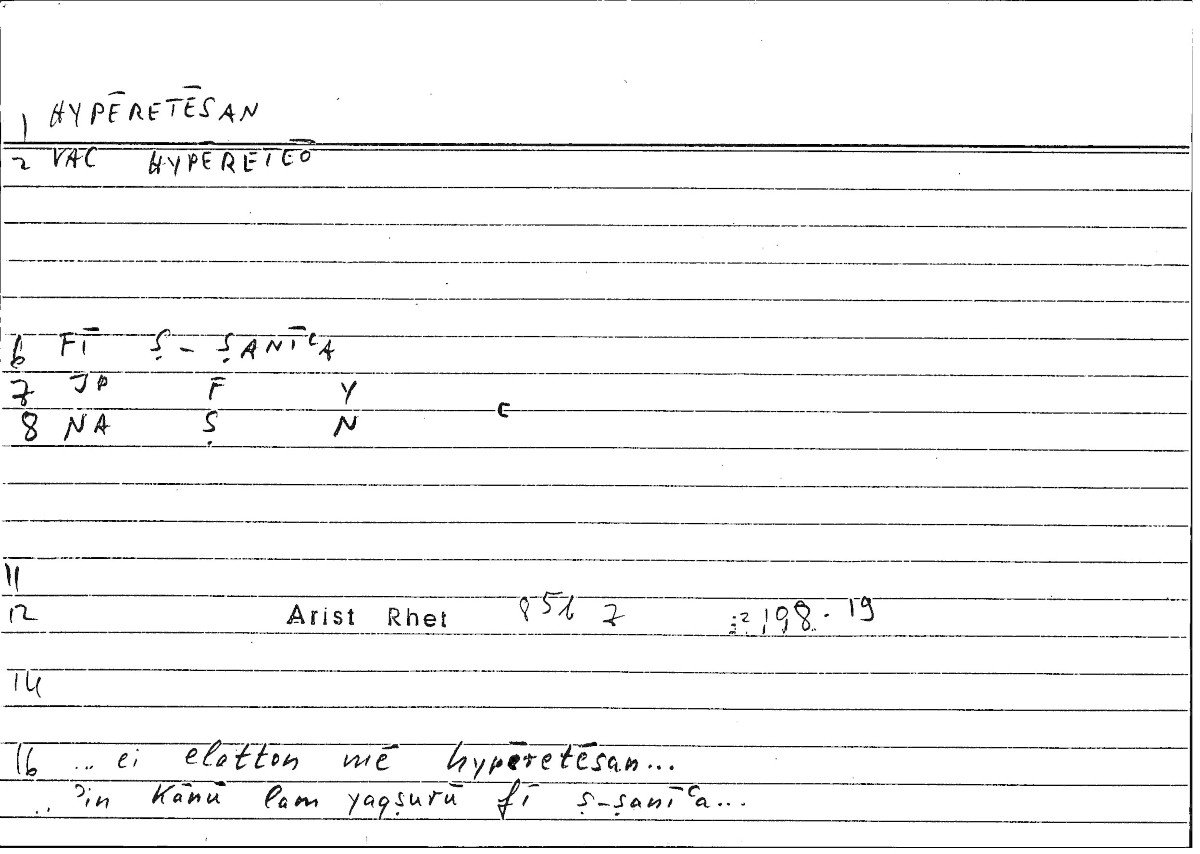 1 HYPĒRETĒSAN
2 VAC HYPĒRETEŌ
6 FĪ Ṣ-ṢANĪʿA
7 JP F Y
8 NA Ṣ N ʿ
11
12 Arist Rhet 85b 7 198.19
14
16 ... ei elatton mē hypēretēsan...
.. ʾin Kānū lam yaqṣurū fī ṣ-ṣanīʿa...